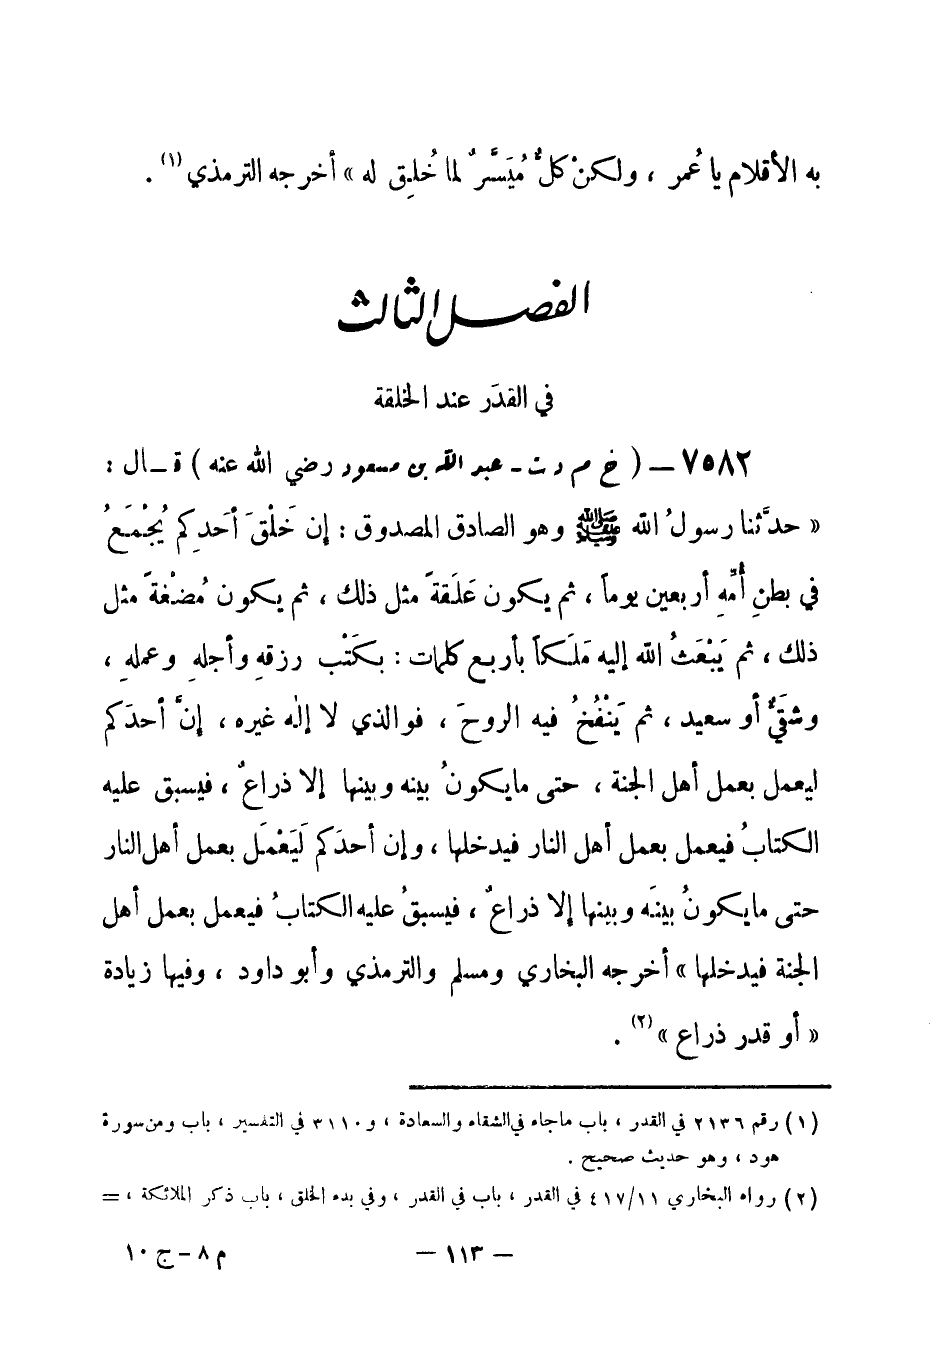 به الأقلام يا عُمر ، ولكنْ كلٌّ مُيَسَّرٌ لما خُلِق له » أخرجه الترمذي (١) .
الفصل الثالث
في القدَر عند الخلقة
٧٥٨٢ – ( خ م د ت – عبد الله بن مسعود رضي الله عنه ) قـال :
« حدَّثنا رسولُ الله ﷺ وهو الصادق المصدوق : إن خَلْقَ أَحَدِكم يُجْمَعُ
في بطنِ أُمِّهِ أربعين يوماً ، ثم يكون عَلَقةً مثل ذلك ، ثم يكون مُضْغةً مثل
ذلك ، ثم يَبْعَثُ الله إليه مَلَكاً بأربع كلمات : بكَتْب رزقهِ وأجلهِ وعملهِ ،
وشقيٌّ أو سعيد ، ثم يَنْفُخُ فيه الروحَ ، فوالذي لا إله غيره ، إنَّ أحدَكم
ليعمل بعمل أهل الجنة ، حتى مايكونُ بينه وبينها إلا ذراعٌ ، فيسبق عليه
الكتابُ فيعمل بعمل أهل النار فيدخلها ، وإن أحدَكم لَيَعْمَل بعمل أهل النار
حتى مايكونُ بينَه وبينها إلا ذراعٌ ، فيسبقُ عليه الكتابُ فيعمل بعمل أهل
الجنة فيدخلها » أخرجه البخاري ومسلم والترمذي وأبو داود ، وفيها زيادة
« أو قدر ذراع » (٢) .
(١) رقم ٢١٣٦ في القدر ، باب ماجاء في الشقاء والسعادة ، و٣١١٠ في التفسير ، باب ومن سورة
هود ، وهو حديث صحيح .
(٢) رواه البخاري ٤١٧/١١ في القدر ، باب في القدر ، وفي بدء الخلق ، باب ذكر الملائكة ، =
– ١١٣ –
م ٨ – ج ١٠